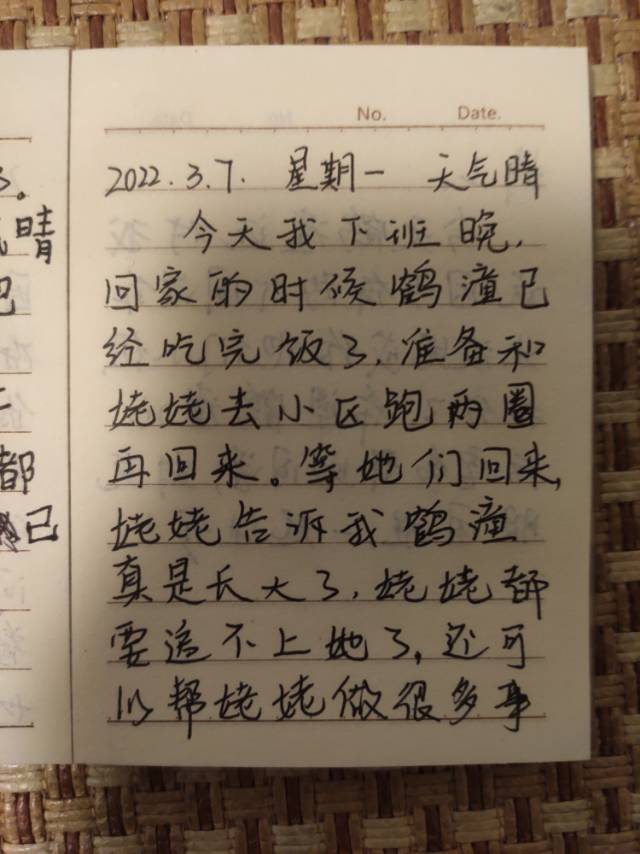 No. Date.
2022.3.7. 星期一 天气晴
今天我下班晚,
回家的时候鹤潼已
经吃完饭了,准备和
姥姥去小区跑两圈
再回来。等她们回来,
姥姥告诉我鹤潼
真是长大了,姥姥都
要追不上她了,还可
以帮姥姥做很多事
晴
都
己